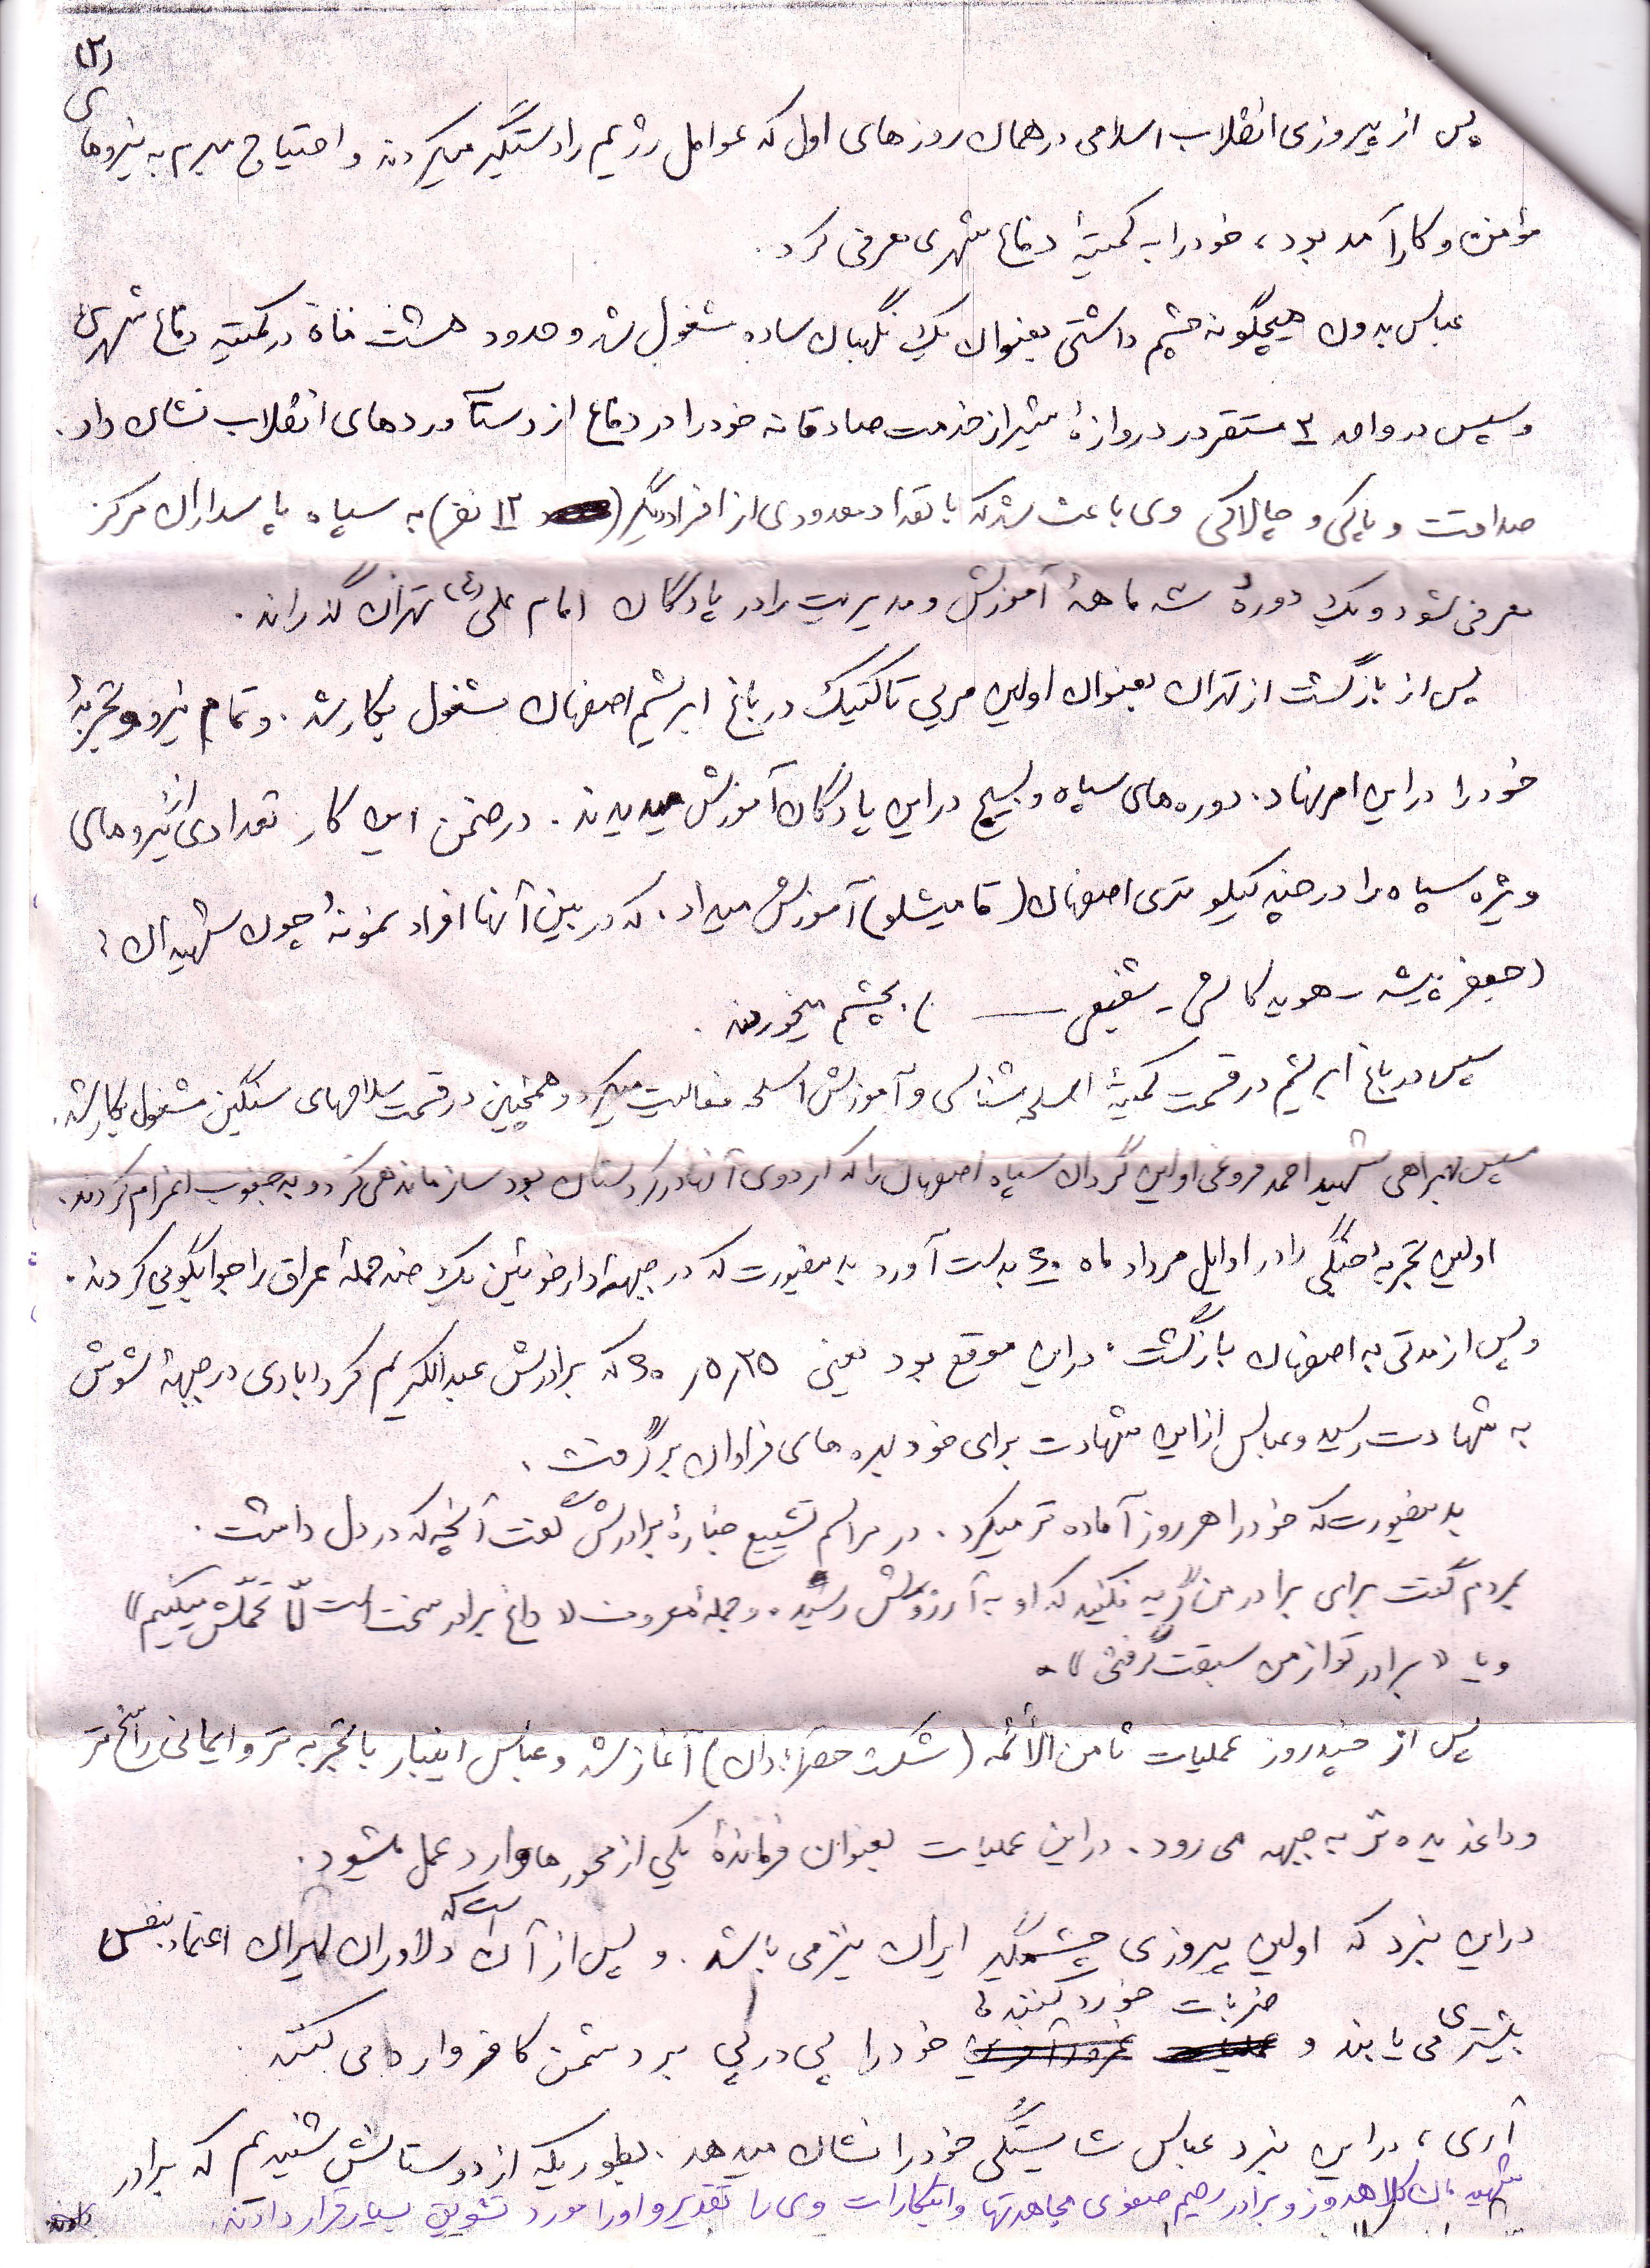 (۳)
پس از پیروزی انقلاب اسلامی در همان روزهای اول که عوامل رژیم را دستگیر میکردند و احتیاج مبرم به نیروهای
مؤمن و کارآمد بود، خود را به کمیتهٔ دفاع شهری معرفی کرد.
عباس بدون هیچگونه چشم داشتی بعنوان یک نگهبان ساده مشغول شد و حدود هشت ماه در کمیته دفاع شهری
و سپس در واحد ۳ مستقر در دروازهٔ شیراز خدمت صادقانه خود را در دفاع از دستآوردهای انقلاب نشان داد.
صداقت و پاکی و چالاکی وی باعث شد که با تعداد معدودی از افراد دیگر (۱۲ نفر) به سپاه پاسداران مرکز
معرفی شود و یک دورهٔ شه ماههٔ آموزش و مدیریت را در پادگان امام علی (ع) تهران گذراند.
پس از بازگشت از تهران بعنوان اولین مربی تاکتیک در باغ ابریشم اصفهان مشغول بکار شد. و تمام نیرو و تجربهٔ
خود را در این امر نهاد. دوره های سپاه و بسیج در این پادگان آموزش میدیدند. در ضمن این کار تعدادی از نیروهای
ویژه سپاه را در چند کیلومتری اصفهان (قامیشلو) آموزش میداد. که در بین آنها افراد نمونهٔ چون شهیدان:
(جعفر پیشه - هوید کالش - شفیعی ـــ ) بچشم میخوردند.
سپس در باغ ابریشم در قسمت کمیتهٔ اسلحه شناسی و آموزش اسلحه فعالیت میکرد و همچنین در قسمت سلاحهای سنگین مشغول بکار شد.
سپس بهمراهی شهید احمد فروغی اولین گردان سپاه اصفهان را که اردوی آنها در کردستان بود سازماندهی کرد و به جنوب اعزام کردند.
اولین تجربهٔ جنگی را در اوایل مرداد ماه ۶۰ بدست آورد بدینصورت که در جبههٔ دارخوئین یک ضد حملهٔ عراق را جوابگویی کردند.
و پس از مدتی به اصفهان بازگشت. در این موقع بود یعنی ۲۵/۵/۶۰ که برادرش عبدالکریم کردابادی در جبههٔ شوش
به شهادت رسید و عباس از این شهادت برای خود بهره های فراوان برگرفت.
بدینصورت که خود را هر روز آماده تر میکرد. در مراسم تشییع جنازهٔ برادرش گفت آنچه که در دل داشت.
بمردم گفت برای برادر من گریه نکنید که او به آرزویش رسید. و جملهٔ معروف «داغ برادر سخت است امّا تحمّلش میکنیم»
و یا «برادر تو از من سبقت گرفتی».
پس از چند روز عملیات ثامن الأئمه (شکست حصر آبادان) آغاز شد و عباس اینبار با تجربه تر و ایمانی راسخ تر
و داغدیده تر به جبهه می رود. در این عملیات بعنوان فرماندهٔ یکی از محورها وارد عمل میشود.
در این نبرد که اولین پیروزی چشمگیر ایران نیز می باشد. و پس از آن است که دلاوران ایران اعتماد بنفس
بیشتری می یابند و ضربات خورد کنندهٔ خود را پی در پی بر دشمن کافر وارد می کنند.
آری، در این نبرد عباس شایستگی خود را نشان میدهد. بطوریکه از دوستانش شنیدیم که برادر
شهیدمان کلاهدوز و برادر رحیم صفوی مجاهدتها و ابتکارات وی را تقدیر و او را مورد تشویق بسیار قرار دادند.